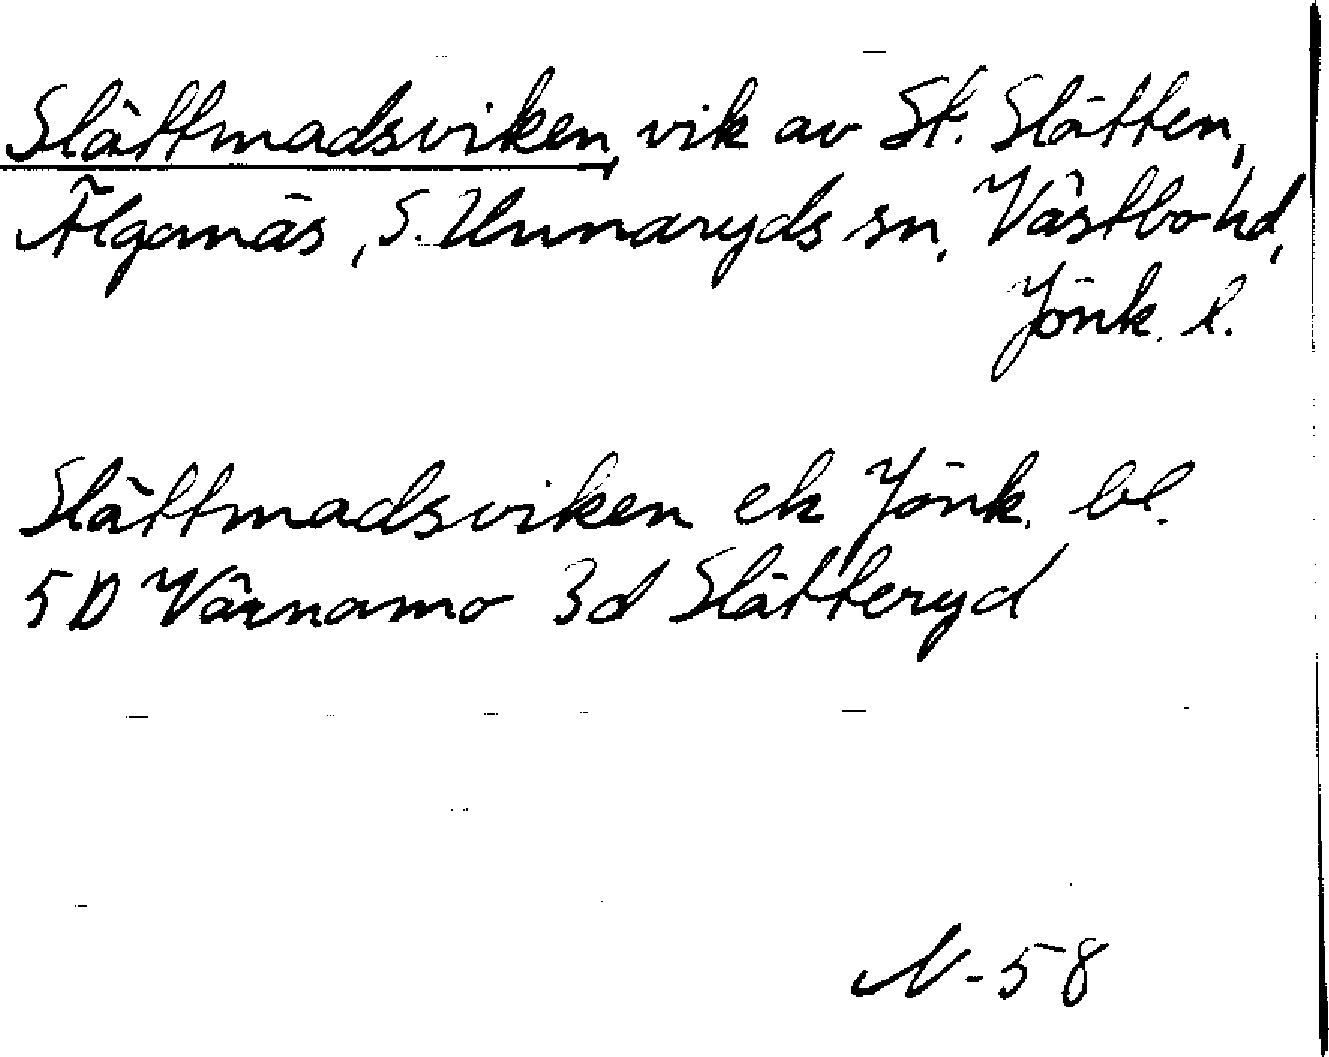 Slättmadsviken, vik av St. Slätten,
Älganäs, S. Unnaryds sn, Västbo hd,
Jönk. l.
Slättmadsviken ek Jönk. bl.
5D Värnamo 3d Slätteryd
N-58